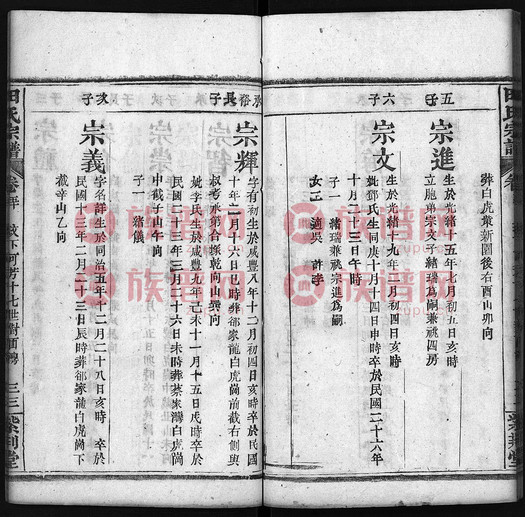 葬白虎東新園後右酉山卯向
五子
宗進
生於光緒十五年七月初五日亥時
立胞弟宗文子緒瑞為嗣兼祧四房
六子
宗文
生於光緒十九年三月初四日亥時
妣鄧氏生同庚十月十四日申時卒於民國二十六年
十月二十三日午時
子一 緒瑞兼祧宗進爲嗣
女二 適吳 許李
永裕長子
宗輝
字有初生於咸豐八年十二月初四日亥時 卒於民國
十年二月十六日巳時葬鄒家龍白虎崗前截右側與
叔考承第合塚乾向山巽向
妣李氏生於咸豐九年己未十一月十五日戌時卒於
民國二十三年三月二十六日未時葬蔡來灣白虎崗
中截子山午向
子一 緒儀
次子
宗義
字名詳生於同治五年十二月二十八日亥時 卒於
民國十三年二月二十三日辰時葬鄒家龍白虎崗下
截辛山乙向
田氏宗譜
三三
紫荆堂